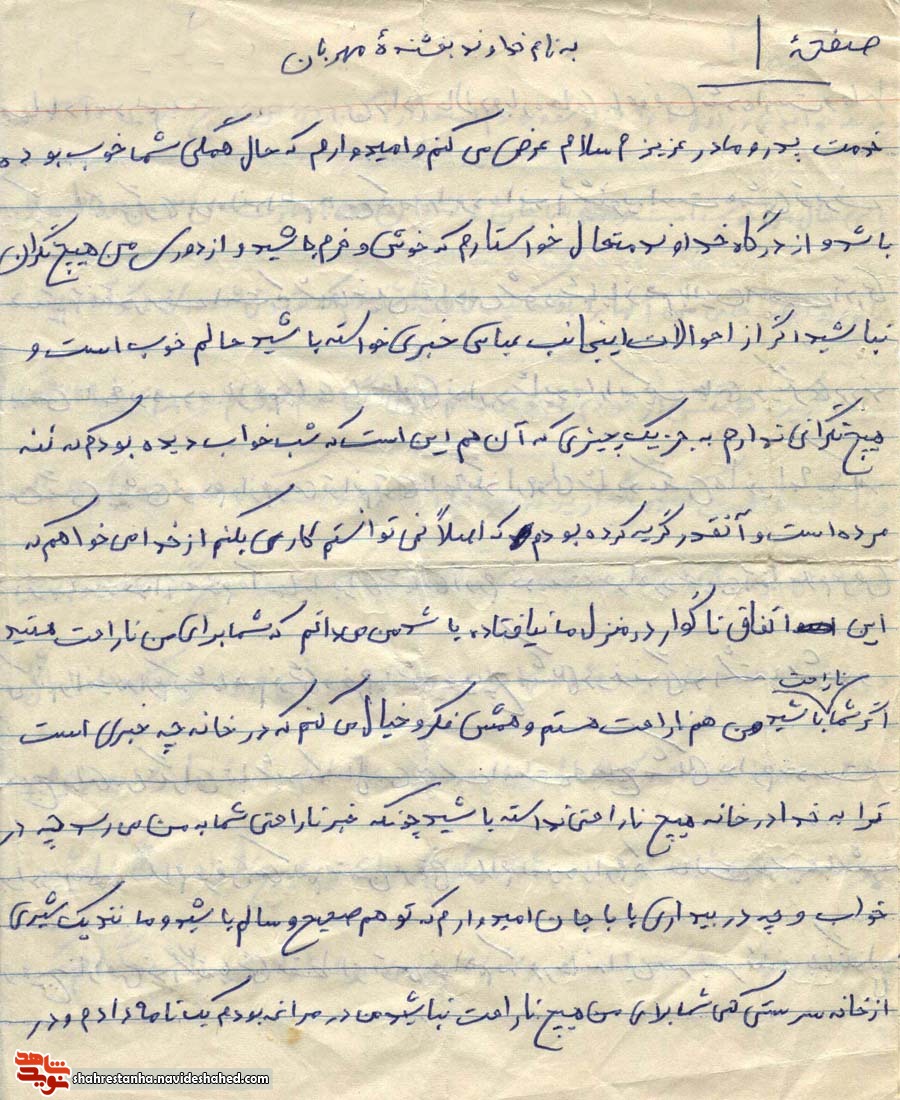 صفحهٔ ۱
به نام خداوند بخشندهٔ مهربان
خدمت پدر و مادر عزیزم سلام عرض می کنم و امیدوارم که حال همگی شما خوب بوده
باشد و از درگاه خداوند متعال خواستارم که خوش و خرم باشید و از دوری من هیچ نگران
نباشید اگر از احوالات اینجانب عباس خبری خواسته باشید حالم خوب است و
هیچ نگرانی ندارم به جز یک چیزی که آن هم این است که شب خواب دیده بودم که ننه
مرده است و آنقدر گریه کرده بودم که اصلاً نمی توانستم کاری بکنم از خدا می خواهم که
این اتفاق ناگوار در منزل ما نیافتاده باشد من می دانم که شما برای من ناراحت هستید
اگر شما ناراحت باشید من هم ناراحت هستم و همش فکر و خیال می کنم که در خانه چه خبری است
ترا به خدا در خانه هیچ ناراحتی نداشته باشید چونکه خبر ناراحتی شما به من می رسد چه در
خواب و چه در بیداری بابا جان امیدوارم که تو هم صحیح و سالم باشید و مانند یک شیری
از خانه سرپستی کنی شما برای من هیچ ناراحت نباشید من در مراغه بودم یک نامه دادم و در
نوید شاهد
shahrestanha.navideshahed.com